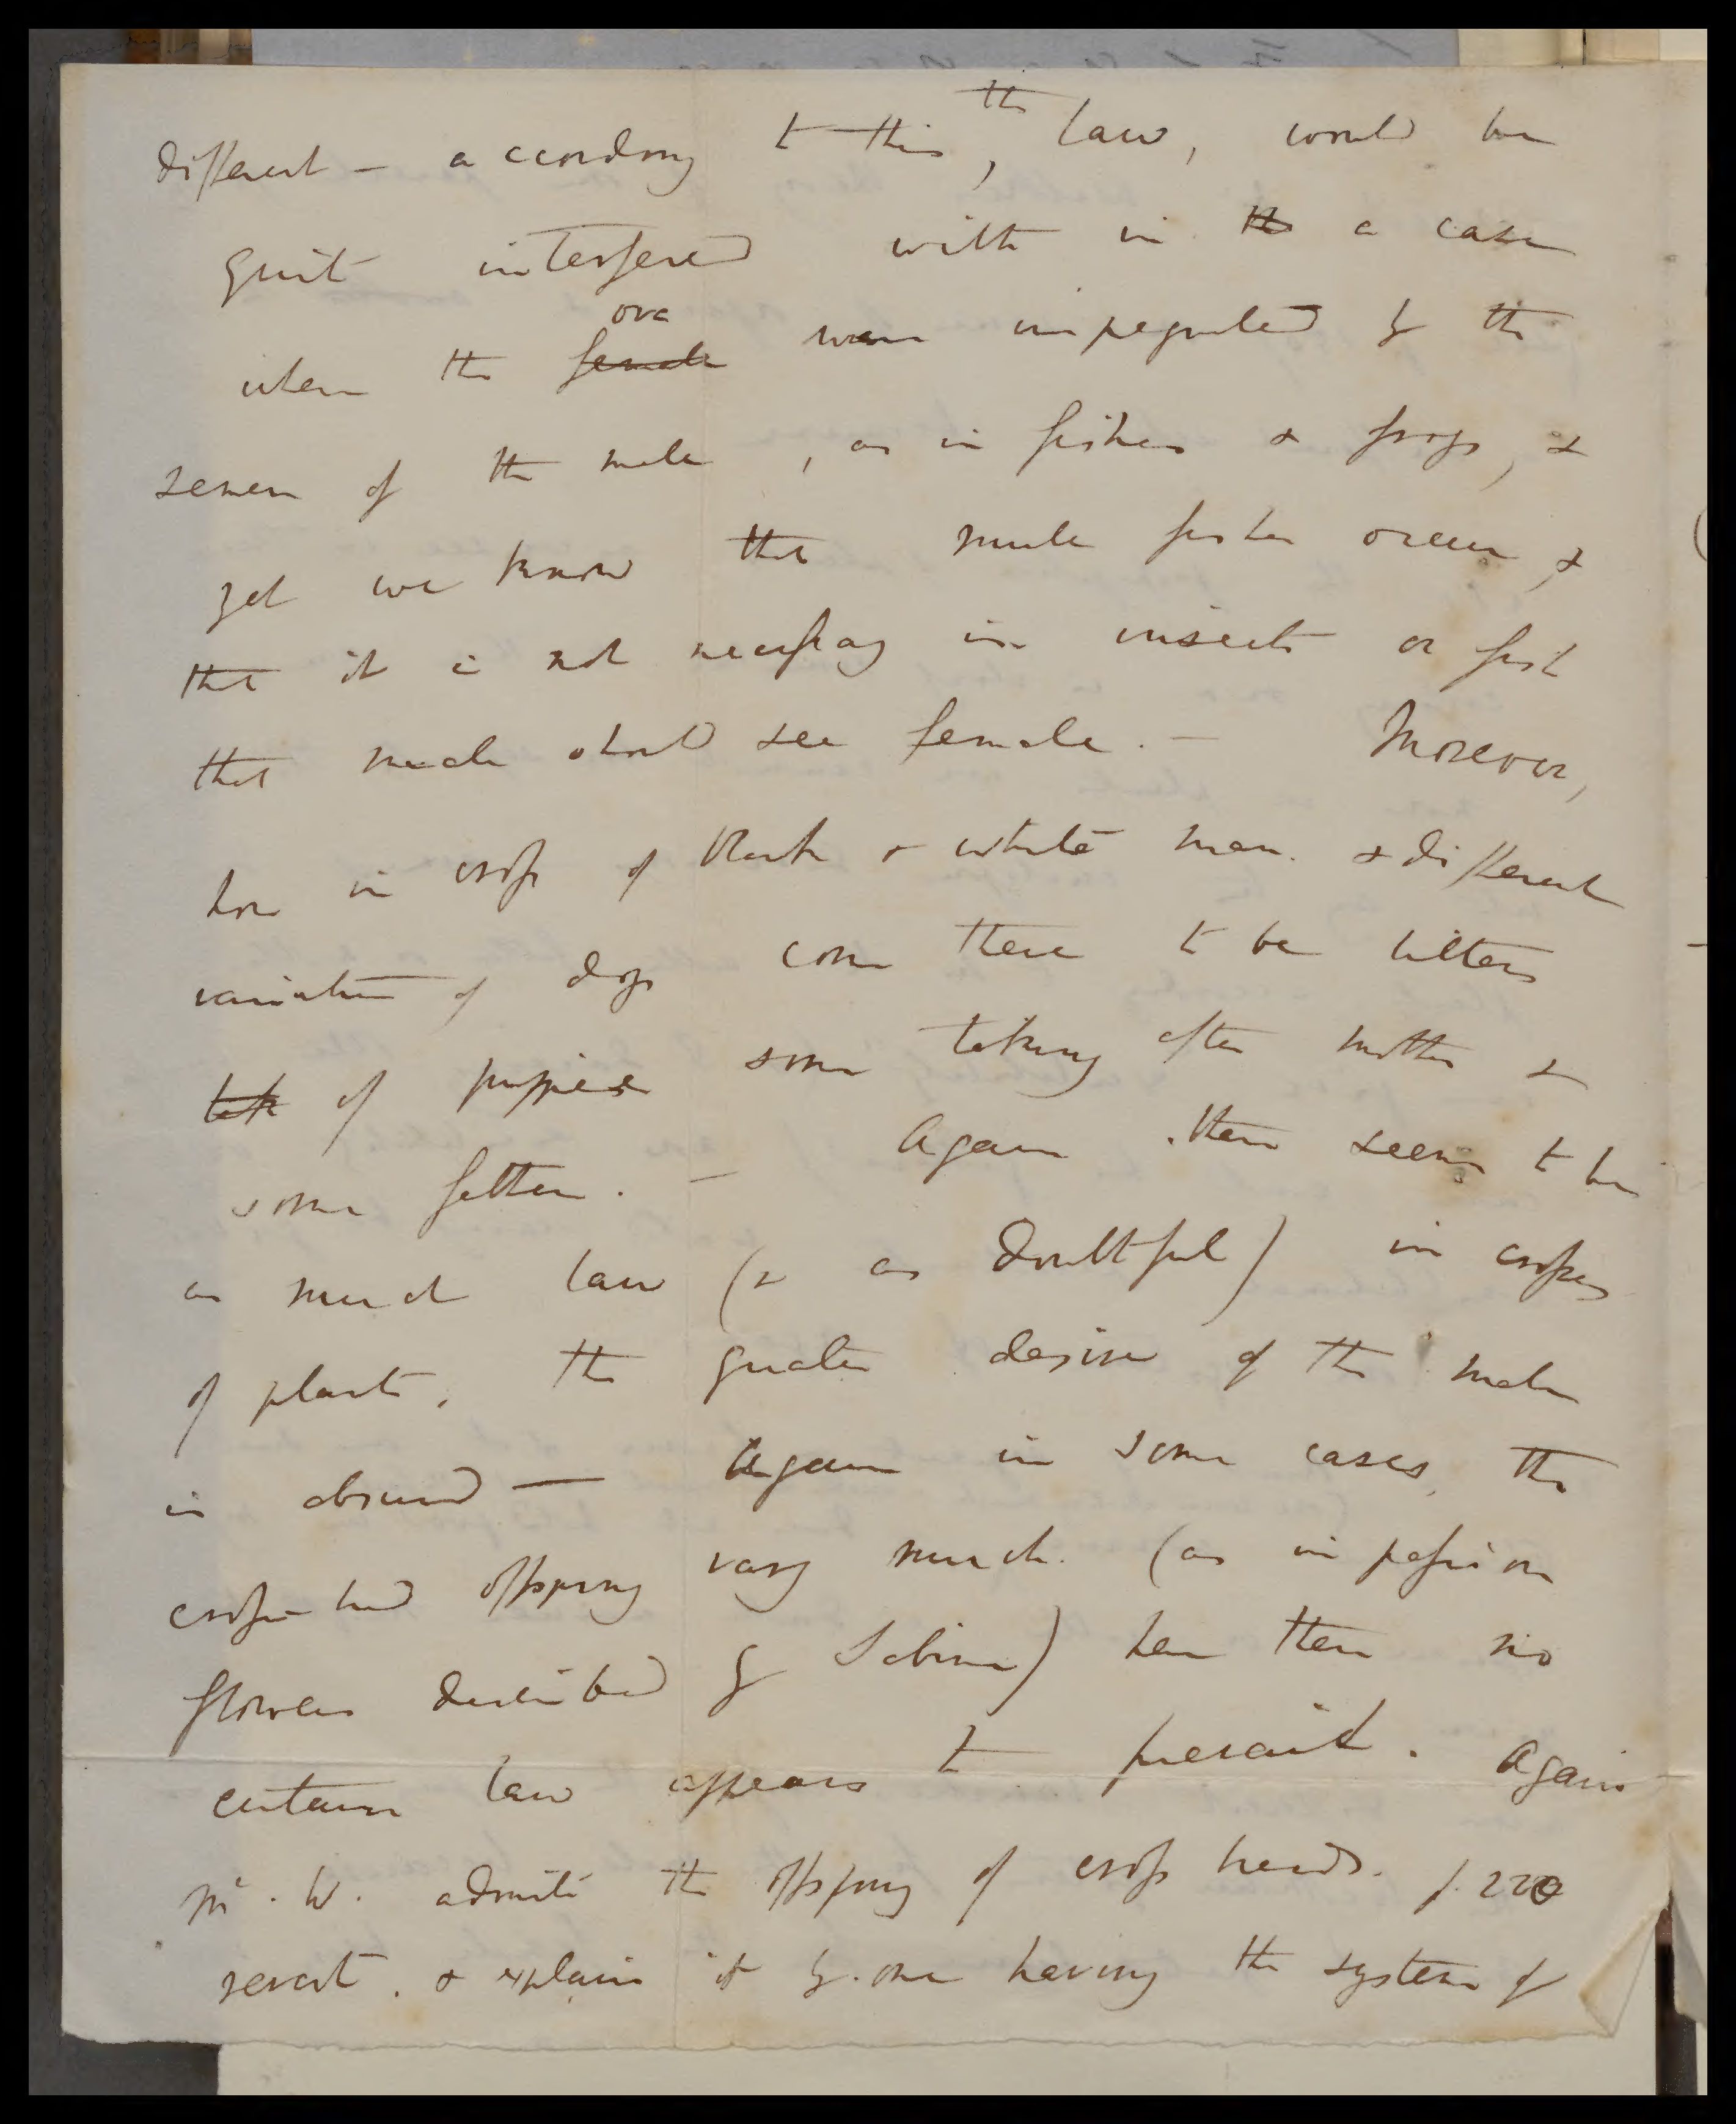 different — according to this, th law, would be
quit interfered with in th a case
when the female ova were impregnated by the
semen of the male, as in fishes & frogs, &
yet we know that mule fishes occur, &
that it is not necessary in insects or fish
that male should see female. — Moreover,
how in cross of black & white men. & different
varieties of dogs come there to be litters
tak of puppies some taking after mother &
some father. — Again there seems to be
as much law (& as doubtful) in crosses
of plants, the greater desire of the male
is absurd — Again in some cases, the
cross-bred offspring vary much. (as in passion
flowers described by Sabine) here then no
certain law appears to prevail. Again
Mr. W. admits the offspring of cross breeds. p. 220
revert. & explains it by one having the system of